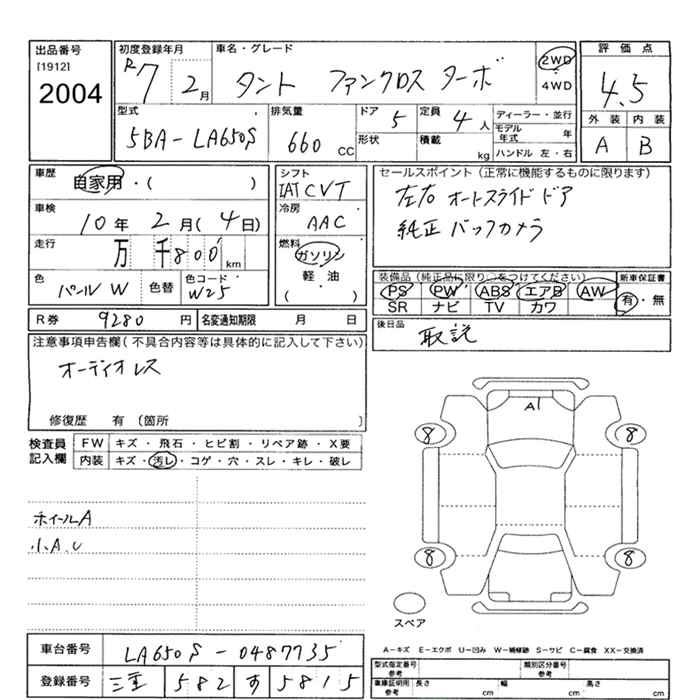 出品番号
[1912]
2004
初度登録年月
R7 2月
車名・グレード
タント ファンクロス ターボ
2WD
4WD
評価点
4.5
外装 内装
A B
型式
5BA-LA650S
排気量
660 CC
ドア 5
形状
定員 4人
積載 kg
ディーラー・並行
モデル年式 年
ハンドル 左・右
車歴
自家用・( )
車検
10年 2月(4日)
走行
万 千800 km
色
パールW
色替
色コード
W25
シフト
IAT CVT
冷房
AAC
燃料
ガソリン
軽・油
( )
セールスポイント(正常に機能するものに限ります)
左右 オートスライドドア
純正 バックカメラ
装備品(純正品に限り○をつけてください)
PS PW ABS エアB AW
SR ナビ TV カワ
新車保証書
有・無
R券 9280 円 名変通知期限 月 日
後日品
取説
注意事項申告欄(不具合内容等は具体的に記入して下さい)
オーディオレス
修復歴 有 〔箇所 〕
検査員記入欄
FW キズ・飛石・ヒビ割・リペア跡・X要
内装 キズ・汚レ・コゲ・穴・スレ・キレ・破レ
ホイールA
小A、U
A1
8 8
8 8
スペア
車台番号 LA650S-0487735
登録番号 三重 582 す 5815
A-キズ E-エクボ U-凹み W-補修跡 S-サビ C-腐食 XX-交換済
型式指定番号 参考
類別区分番号 参考
車庫証明用 参考 長さ cm 幅 cm 高さ cm